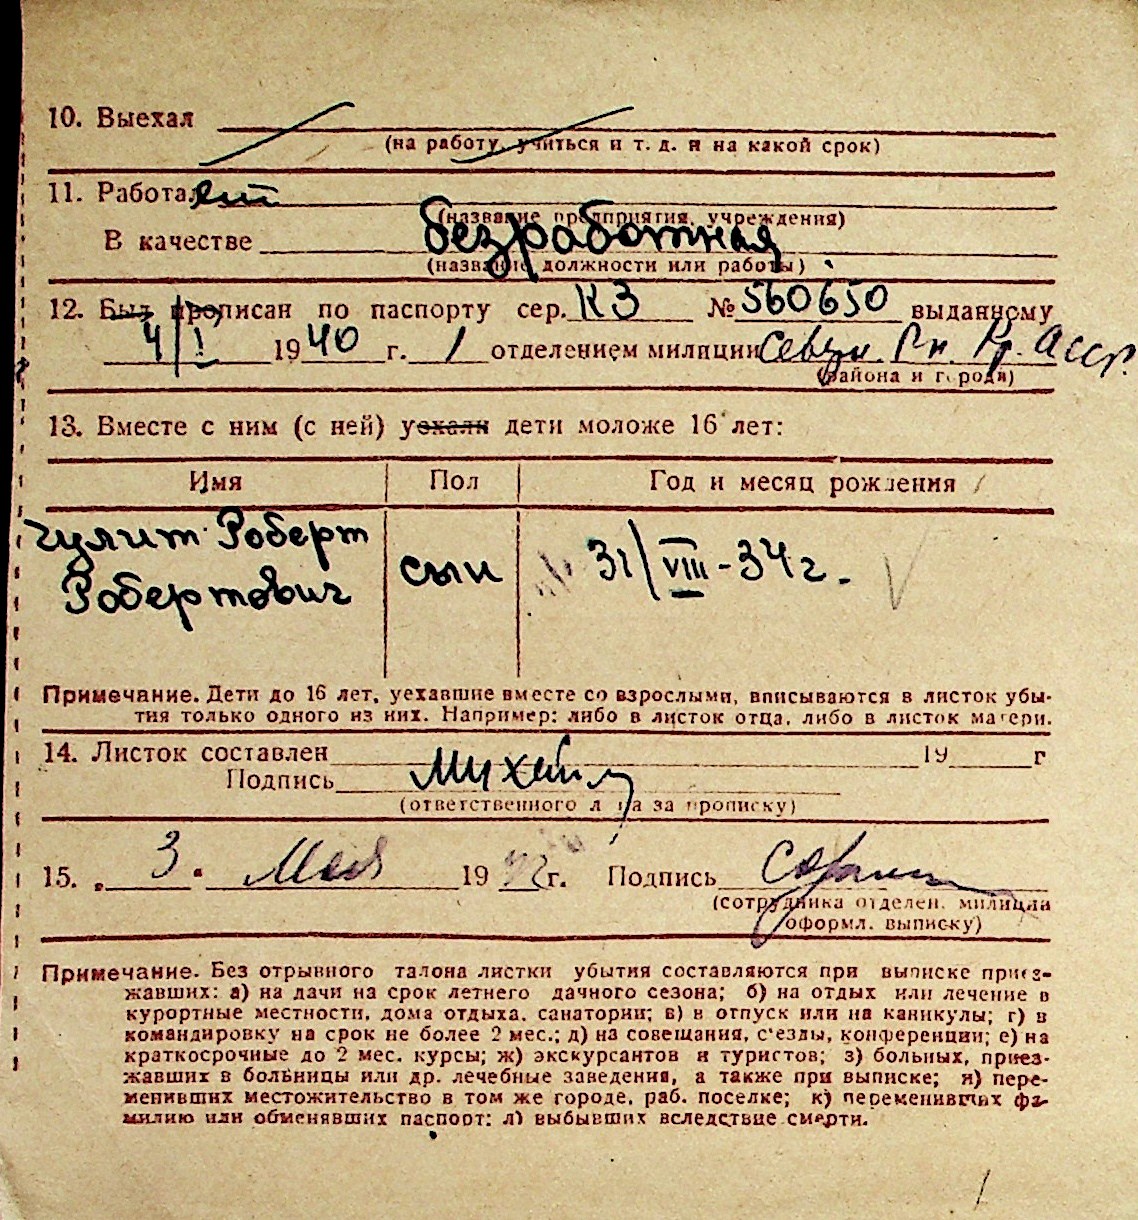 10. Выехал
(на работу, учиться и т. д. и на какой срок)
11. Работает
(название предприятия, учреждения)
В качестве безработная
(название должности или работы)
12. Был прописан по паспорту сер. КЗ № 560650 выданному
4/I 1940 г. 1 отделением милиции Севун. Рн. Кр. АССР.
(района и города)
13. Вместе с ним (с ней) уехали дети моложе 16 лет:
Имя Пол Год и месяц рождения
Чулит Роберт
Робертович сын 31/VIII-34 г.
Примечание. Дети до 16 лет, уехавшие вместе со взрослыми, вписываются в листок убы-
тия только одного из них. Например: либо в листок отца, либо в листок матери.
14. Листок составлен 19 г
Подпись
(ответственного лица за прописку)
15. „3" Мая 1942 г. Подпись
(сотрудника отделен. милиции
оформл. выписку)
Примечание. Без отрывного талона листки убытия составляются при выписке приез-
жавших: а) на дачи на срок летнего дачного сезона; б) на отдых или лечение в
курортные местности, дома отдыха, санатории; в) в отпуск или на каникулы; г) в
командировку на срок не более 2 мес.; д) на совещания, с'езды, конференции; е) на
краткосрочные до 2 мес. курсы; ж) экскурсантов и туристов; з) больных, приез-
жавших в больницы или др. лечебные заведения, а также при выписке; и) пере-
менивших местожительство в том же городе, раб. поселке; к) переменивших фа-
милию или обменявших паспорт; л) выбывших вследствие смерти.